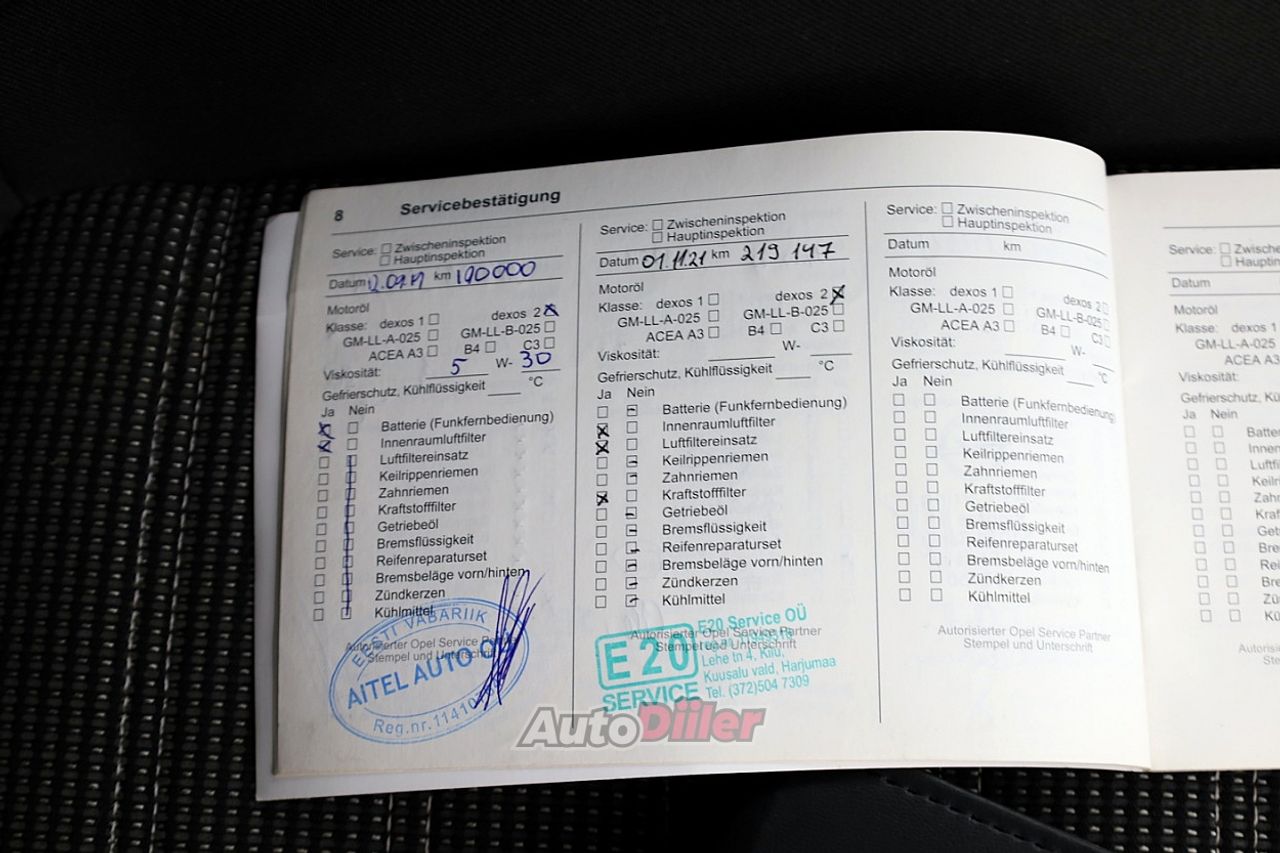 8 Servicebestätigung
Service: Zwischeninspektion
Hauptinspektion
Datum km 190000
Motoröl
Klasse: dexos 1 dexos 2
GM-LL-A-025 GM-LL-B-025
ACEA A3 B4 C3
Viskosität: 5 W- 30
Gefrierschutz, Kühlflüssigkeit °C
Ja Nein
Batterie (Funkfernbedienung)
Innenraumluftfilter
Luftfiltereinsatz
Keilrippenriemen
Zahnriemen
Kraftstofffilter
Getriebeöl
Bremsflüssigkeit
Reifenreparaturset
Bremsbeläge vorn/hinten
Zündkerzen
Kühlmittel
Autorisierter Opel Service Partner
Stempel und Unterschrift
EESTI VABARIIK
AITEL AUTO OÜ
Reg.nr.
Service: Zwischeninspektion
Hauptinspektion
Datum 01.11.21 km 219 147
Motoröl
Klasse: dexos 1 dexos 2
GM-LL-A-025 GM-LL-B-025
ACEA A3 B4 C3
Viskosität: W-
Gefrierschutz, Kühlflüssigkeit °C
Ja Nein
Batterie (Funkfernbedienung)
Innenraumluftfilter
Luftfiltereinsatz
Keilrippenriemen
Zahnriemen
Kraftstofffilter
Getriebeöl
Bremsflüssigkeit
Reifenreparaturset
Bremsbeläge vorn/hinten
Zündkerzen
Kühlmittel
Autorisierter Opel Service Partner
Stempel und Unterschrift
E20
SERVICE
E20 Service OÜ
Lehe tn 4, Kiiu,
Kuusalu vald, Harjumaa
Tel. (372)504 7309
Service: Zwischeninspektion
Hauptinspektion
Datum km
Motoröl
Klasse: dexos 1 dexos 2
GM-LL-A-025 GM-LL-B-025
ACEA A3 B4 C3
Viskosität: W-
Gefrierschutz, Kühlflüssigkeit °C
Ja Nein
Batterie (Funkfernbedienung)
Innenraumluftfilter
Luftfiltereinsatz
Keilrippenriemen
Zahnriemen
Kraftstofffilter
Getriebeöl
Bremsflüssigkeit
Reifenreparaturset
Bremsbeläge vorn/hinten
Zündkerzen
Kühlmittel
Autorisierter Opel Service Partner
Stempel und Unterschrift
Service: Zwische
Haupti
Datum
Motoröl
Klasse: dexos 1
GM-LL-A-025
ACEA A3
Viskosität:
Gefrierschutz, Kü
Ja Nein
Batte
Innen
Luftfi
Keilri
Zahn
Kraf
Getri
Bre
Rei
Bre
Zü
Kü
Autoris
St
AutoDiiler